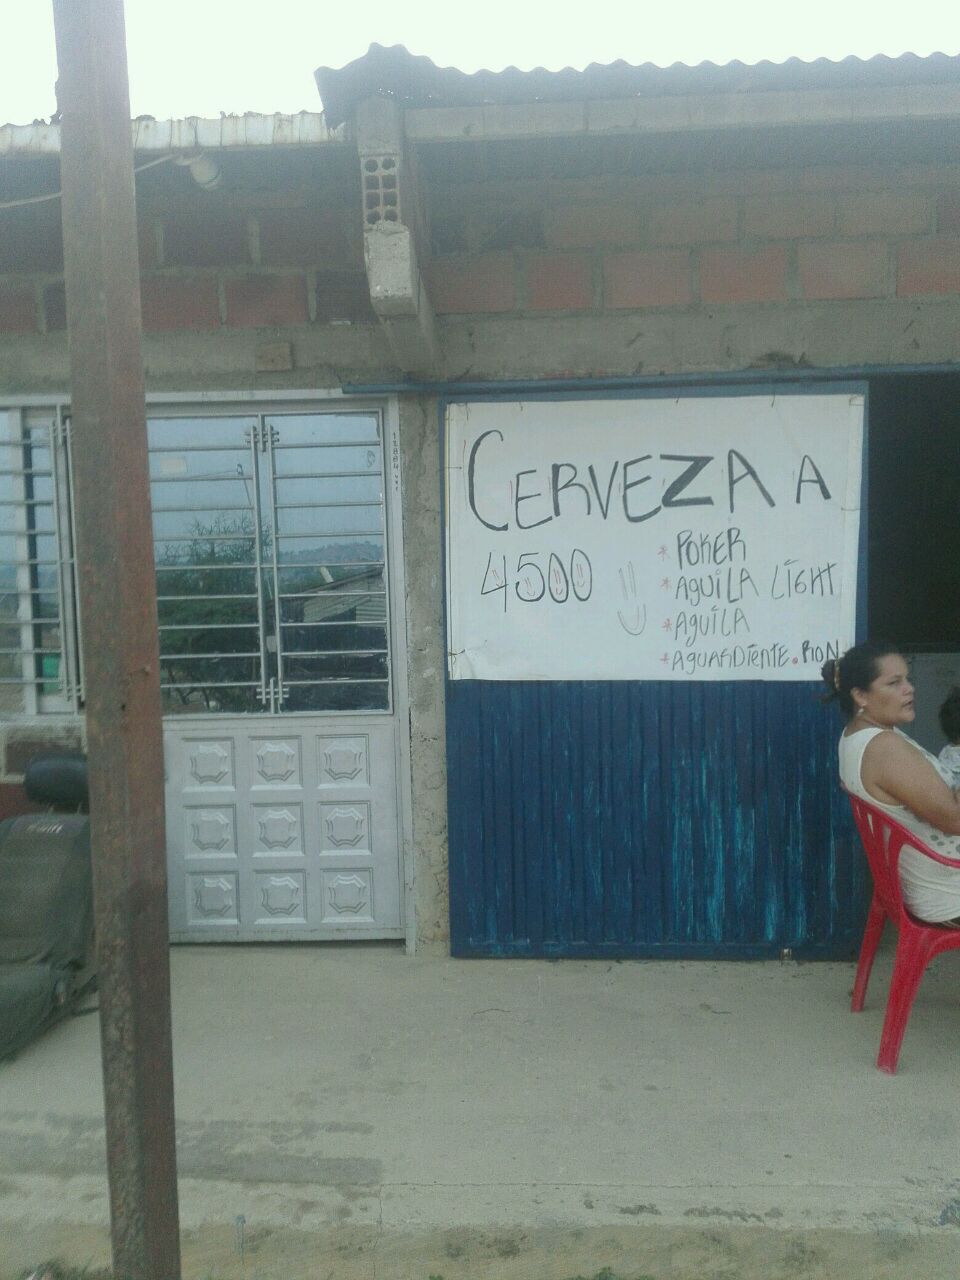 CERVEZA A
4500
* POKER
* AGUILA LIGHT
* AGUILA
* AGUARDIENTE.RON